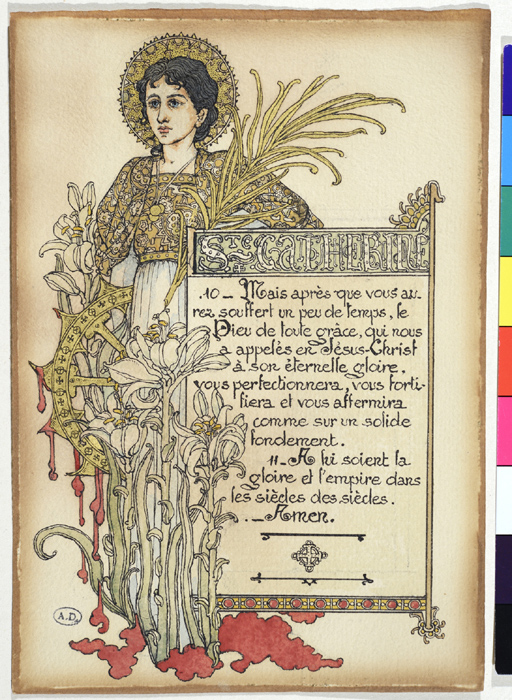 Ste CATHERINE
.10 _ Mais après que vous au-
rez souffert un peu de temps, le
Dieu de toute grâce, qui nous
a appelés en Jésus-Christ
à son éternelle gloire,
vous perfectionnera, vous forti-
fiera et vous affermira
comme sur un solide
fondement.
11_ A lui soient la
gloire et l'empire dans
les siècles des siècles.
. _ Amen.
A.D.